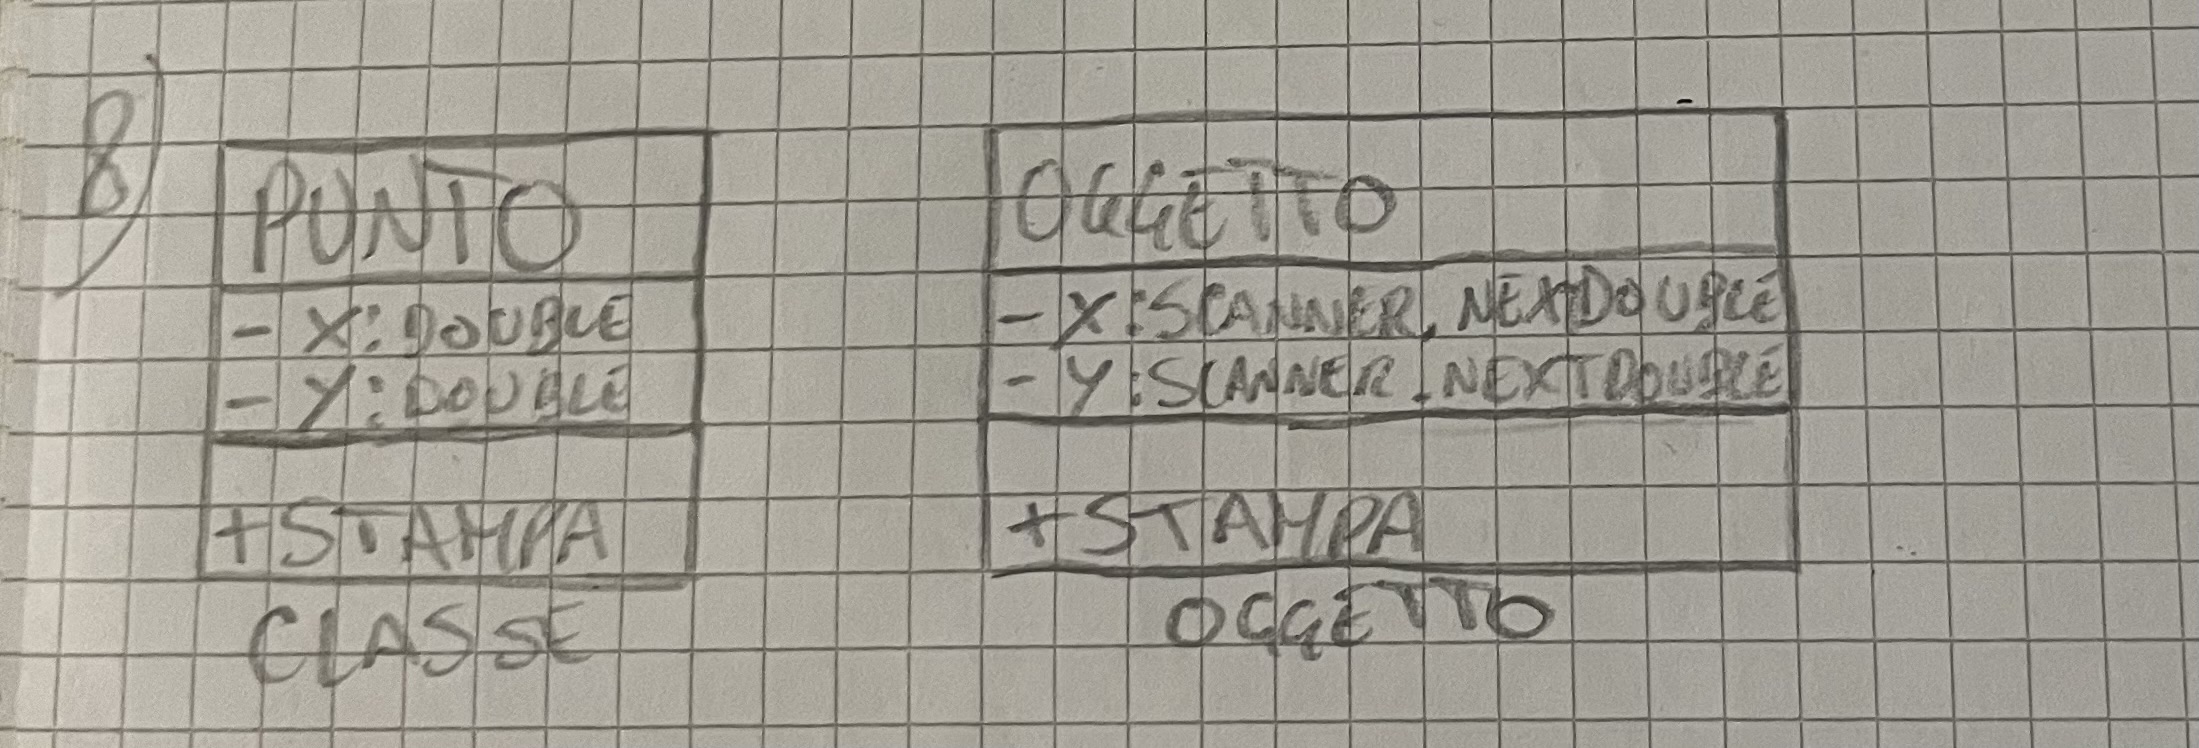 8)
PUNTO
- X: DOUBLE
- Y: DOUBLE
+ STAMPA
CLASSE
OGGETTO
- X: SCANNER. NEXTDOUBLE
- Y: SCANNER. NEXTDOUBLE
+ STAMPA
OGGETTO